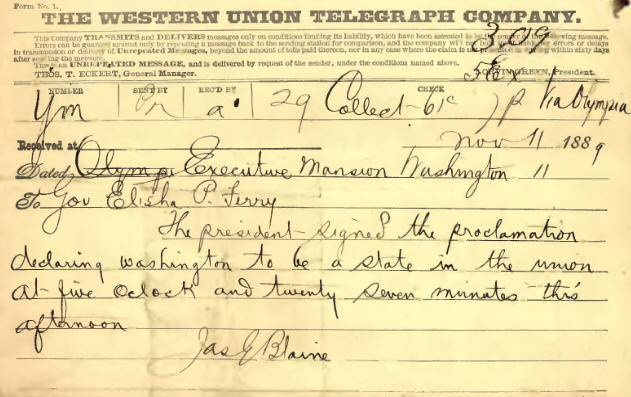 Form No. 1.
THE WESTERN UNION TELEGRAPH COMPANY.
This Company TRANSMITS and DELIVERS messages only on conditions limiting its liability, which have been assented to by the sender of the following message.
Errors can be guarded against only by repeating a message back to the sending station for comparison, and the company will not be liable for errors or delays
in transmission or delivery of Unrepeated Messages, beyond the amount of tolls paid thereon, nor in any case where the claim is not presented in writing within sixty days
after sending the message.
This is an UNREPEATED MESSAGE, and is delivered by request of the sender, under the conditions named above.
THOS. T. ECKERT, General Manager. NORVIN GREEN, President.
309
NUMBER SENT BY REC'D BY CHECK
Ym a 29 Collect 61c Via Olympia
Received at Nov 11 1889
Dated Olymp Executive Mansion Washington 11
To Gov Elisha P. Ferry
The president signed the proclamation
declaring washington to be a state in the union
at five oclock and twenty seven minutes this
afternoon
Jas G Blaine